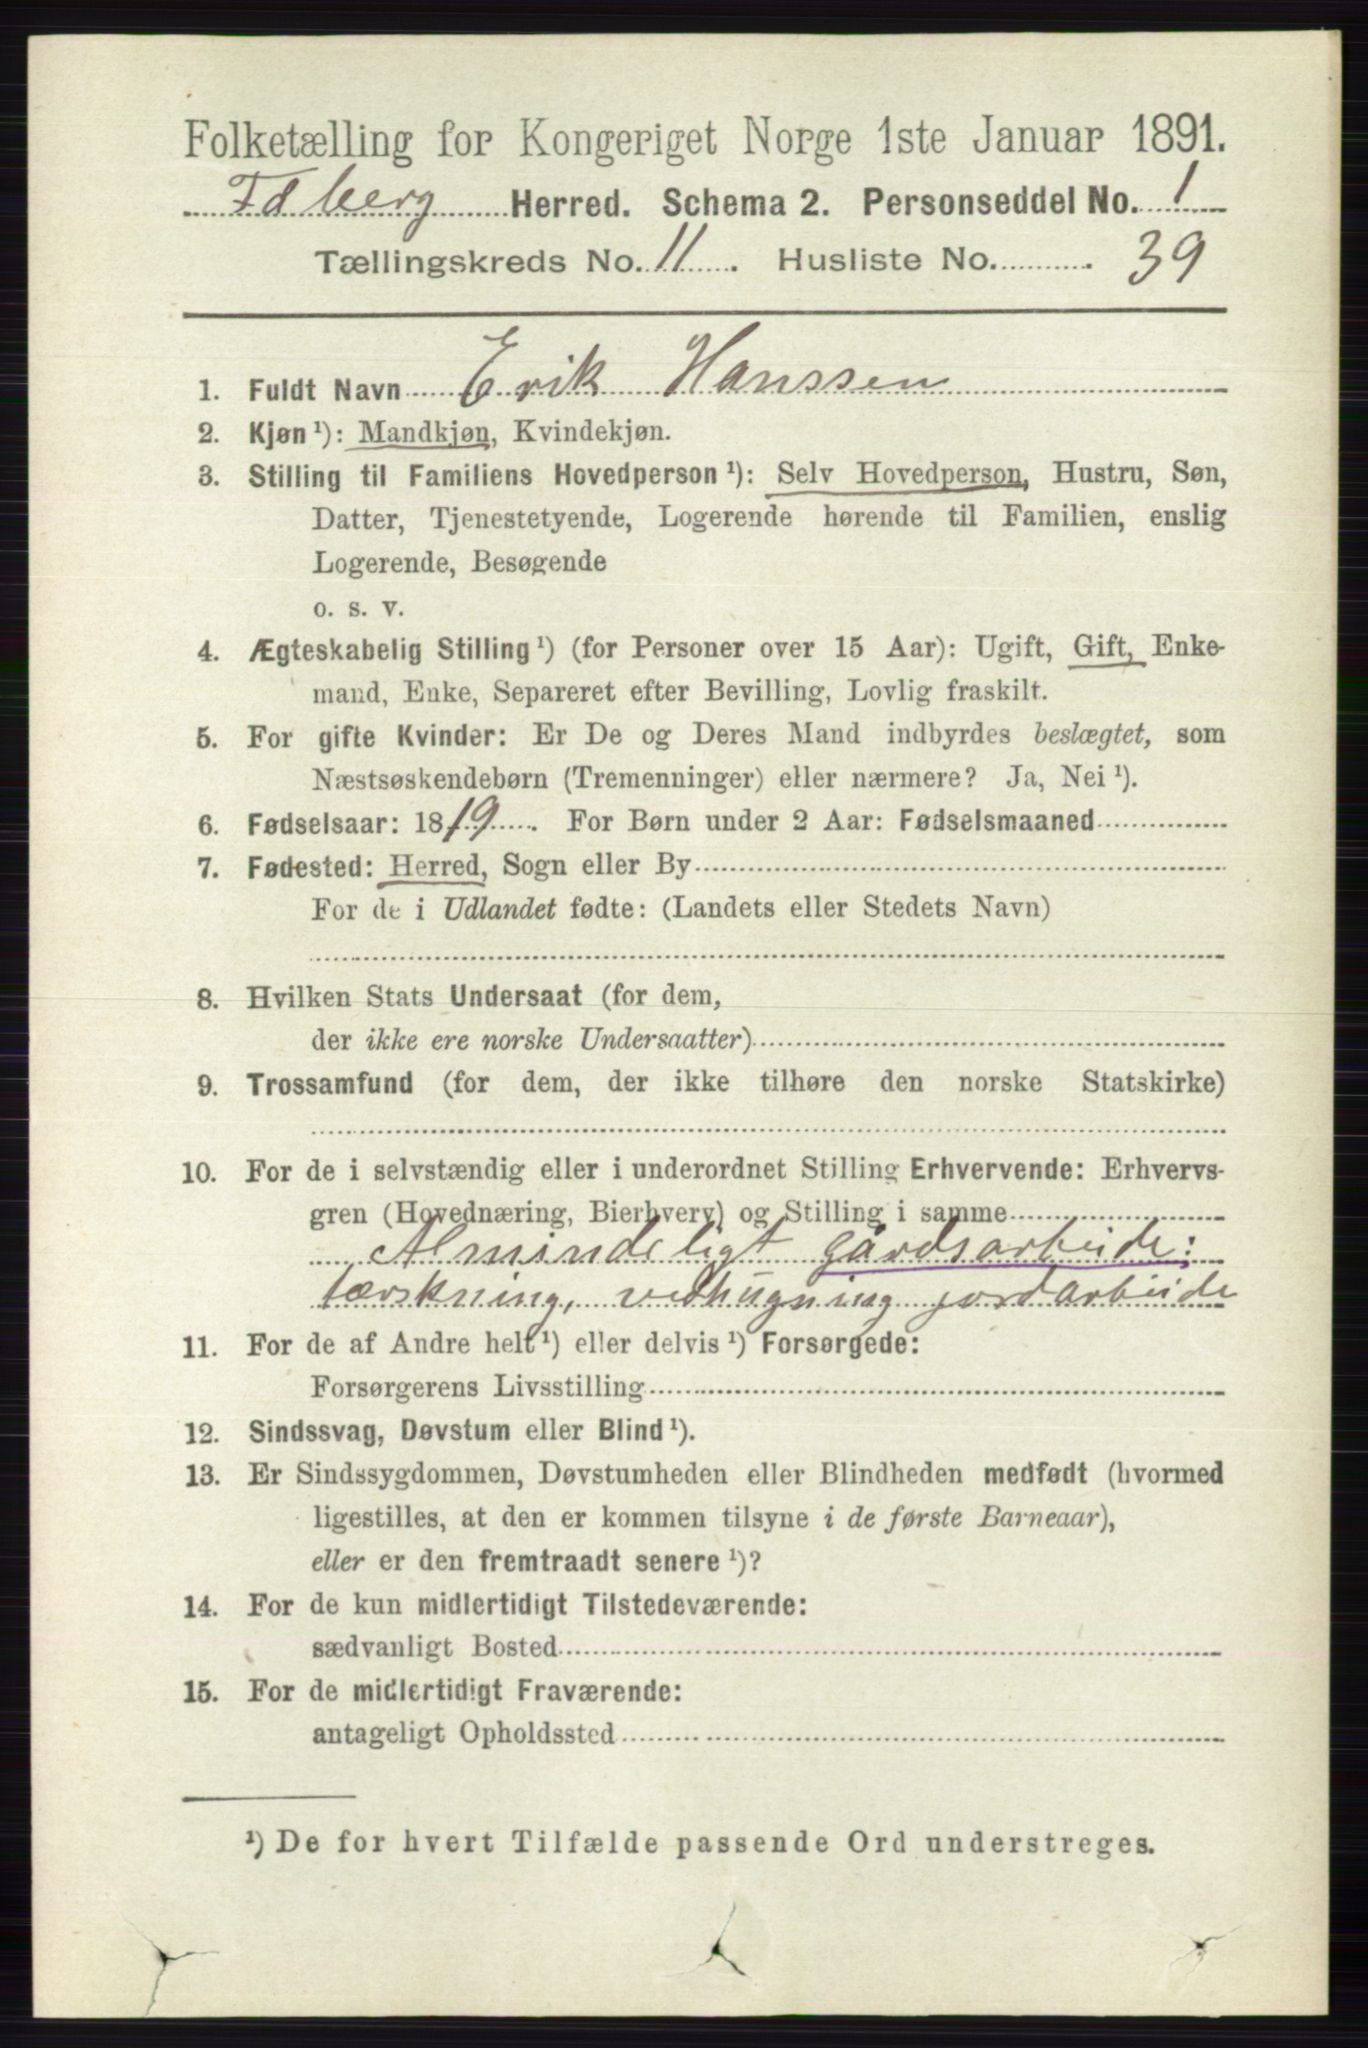 Folketælling for Kongeriget Norge 1ste Januar 1891.
Idberg Herred. Schema 2. Personseddel No. 1
Tællingskreds No. 11. Husliste No. 39
1. Fuldt Navn Erik Hanssen
2. Kjøn¹): Mandkjøn, Kvindekjøn.
3. Stilling til Familiens Hovedperson¹): Selv Hovedperson, Hustru, Søn,
Datter, Tjenestetyende, Logerende hørende til Familien, enslig
Logerende, Besøgende
o. s. v.
4. Ægteskabelig Stilling¹) (for Personer over 15 Aar): Ugift, Gift, Enke-
mand, Enke, Separeret efter Bevilling, Lovlig fraskilt.
5. For gifte Kvinder: Er De og Deres Mand indbyrdes beslægtet, som
Næstsøskendebørn (Tremenninger) eller nærmere? Ja, Nei¹).
6. Fødselsaar: 1819. For Børn under 2 Aar: Fødselsmaaned
7. Fødested: Herred, Sogn eller By
For de i Udlandet fødte: (Landets eller Stedets Navn)
8. Hvilken Stats Undersaat (for dem,
der ikke ere norske Undersaatter)
9. Trossamfund (for dem, der ikke tilhøre den norske Statskirke)
10. For de i selvstændig eller i underordnet Stilling Erhvervende: Erhvervs-
gren (Hovednæring, Bierhverv) og Stilling i samme
Almindeligt gårdsarbeide:
tærskning, vedhugning jordarbeide
11. For de af Andre helt¹) eller delvis¹) Forsørgede:
Forsørgerens Livsstilling
12. Sindssvag, Døvstum eller Blind¹).
13. Er Sindssygdommen, Døvstumheden eller Blindheden medfødt (hvormed
ligestilles, at den er kommen tilsyne i de første Barneaar),
eller er den fremtraadt senere¹)?
14. For de kun midlertidigt Tilstedeværende:
sædvanligt Bosted
15. For de midlertidigt Fraværende:
antageligt Opholdssted
¹) De for hvert Tilfælde passende Ord understreges.